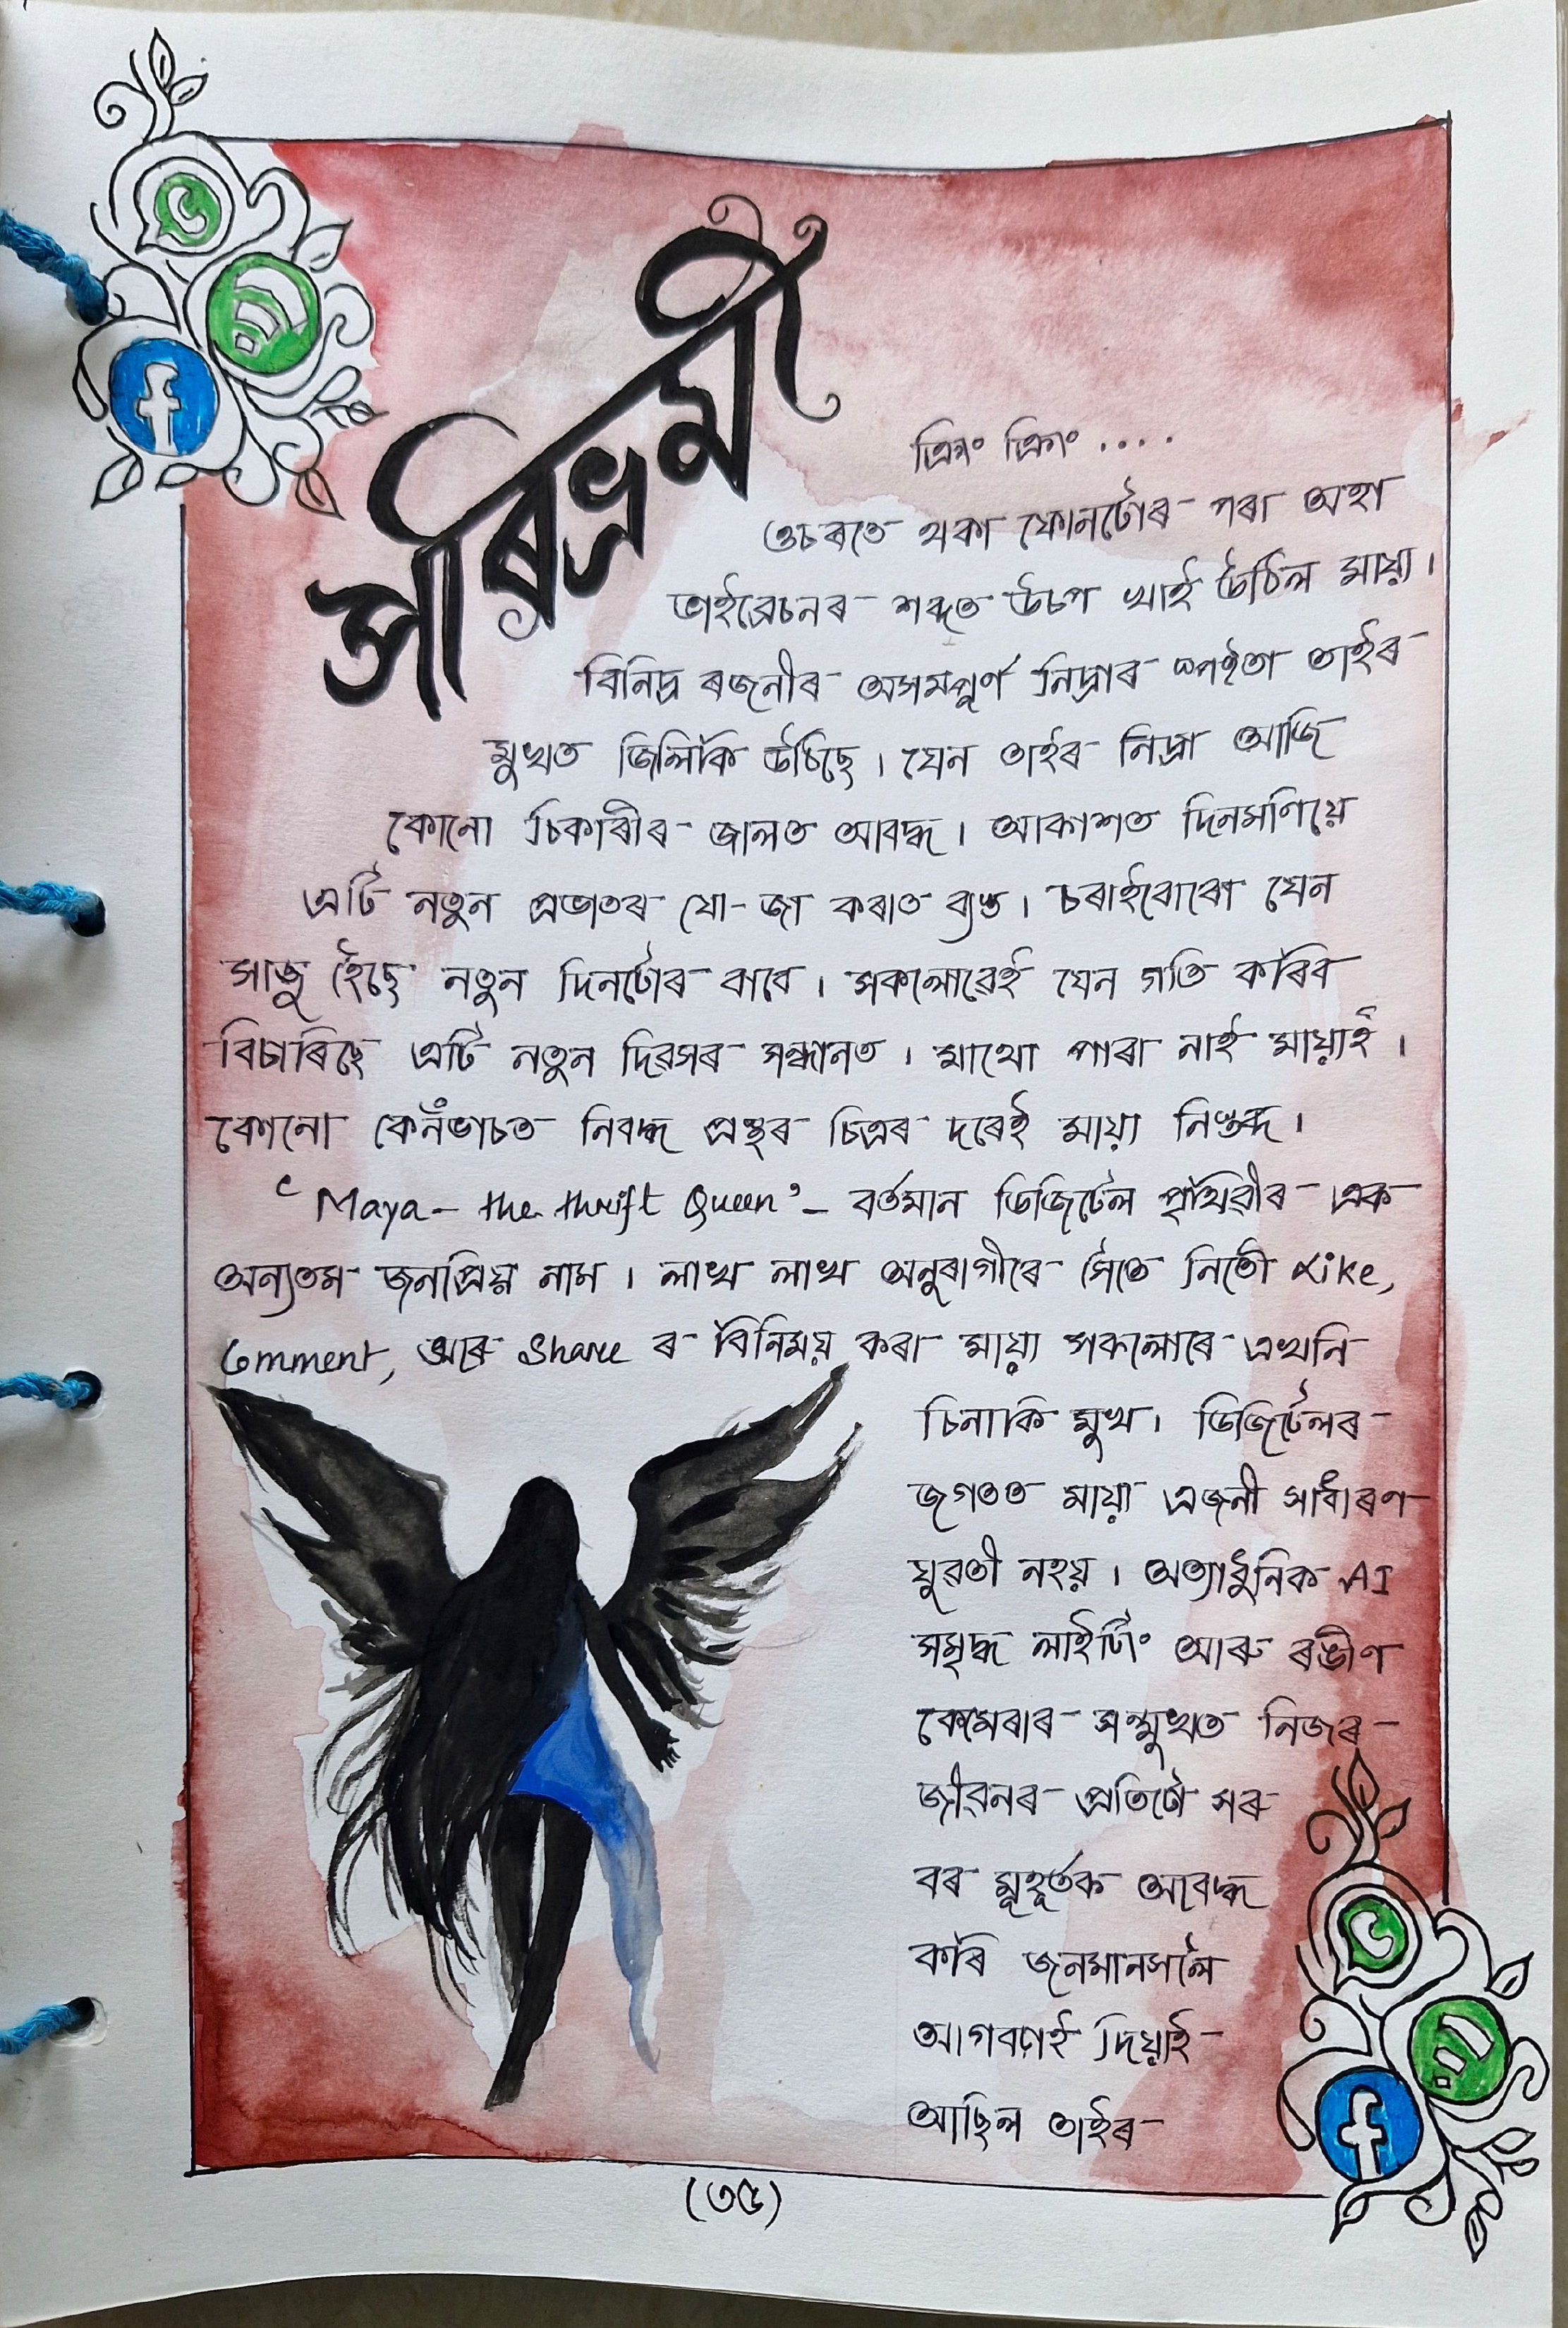 পৰিভ্ৰমী
ক্ৰিং ক্ৰিং ....
ওচৰতে থকা ফোনটোৰ পৰা অহা
ভাইব্ৰেচনৰ শব্দত উচপ খাই উঠিল মায়া।
বিনিদ্ৰ ৰজনীৰ অসমপূৰ্ণ নিদ্ৰাৰ স্পষ্টতা তাইৰ
মুখত জিলিকি উঠিছে। যেন তাইৰ নিদ্ৰা আজি
কোনো চিকাৰীৰ জালত আবদ্ধ। আকাশত দিনমণিয়ে
এটি নতুন প্ৰভাতৰ যো-জা কৰাত ব্যস্ত। চৰাইবোৰো যেন
সাজু হৈছে নতুন দিনটোৰ বাবে। সকলোৱেই যেন গতি কৰিব
বিচাৰিছে এটি নতুন দিৱসৰ সন্ধানত। মাথো পাৰা নাই মায়াই।
কোনো কেনভাচত নিবদ্ধ প্ৰস্থৰ চিত্ৰৰ দৰেই মায়া নিস্তব্ধ।
‘Maya - the thrift Queen’ - বৰ্তমান ডিজিটেল পৃথিৱীৰ এক
অন্যতম জনপ্ৰিয় নাম। লাখ লাখ অনুৰাগীৰে সৈতে নিতৌ Like,
Comment, আৰু Share ৰ বিনিময় কৰা মায়া সকলোৰে এখনি
চিনাকি মুখ। ডিজিটেলৰ
জগতত মায়া এজনী সাধাৰণ
যুৱতী নহয়। অত্যাধুনিক AI
সমৃদ্ধ লাইটিং আৰু ৰঙীণ
কেমেৰাৰ সন্মুখত নিজৰ
জীৱনৰ প্ৰতিটো সৰু
বৰ মুহূৰ্তক আবদ্ধ
কৰি জনমানসলৈ
আগবঢ়াই দিয়াই
আছিল তাইৰ
(৩৫)